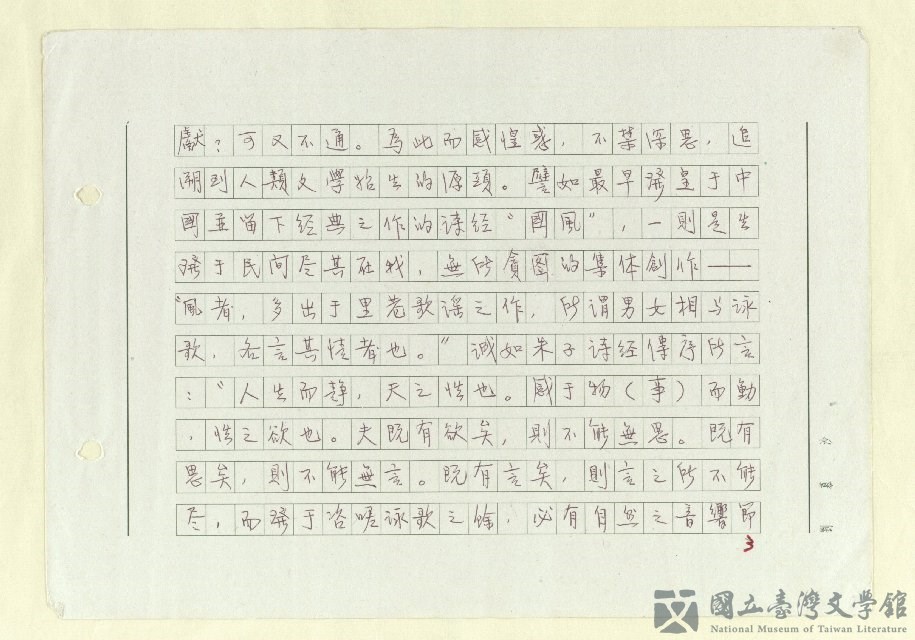 獻？可又不通。為此而感惶惑，不禁深思，追
溯到人類文學始生的源頭。譬如最早發皇于中
國并留下经典之作的诗经“國風”，一則是生
發于民间尽其在我，無所貪圖的集体創作——
“風者，多出于里巷歌谣之作，所谓男女相与詠
歌，各言其情者也。”诚如朱子诗经傳序所言
：“人生而靜，天之性也。感于物（事）而動
，性之欲也。夫既有欲矣，則不能無思。既有
思矣，則不能無言。既有言矣，則言之所不能
尽，而發于咨嗟詠歌之餘，必有自然之音響節
3
國立臺灣文學館
National Museum of Taiwan Literature